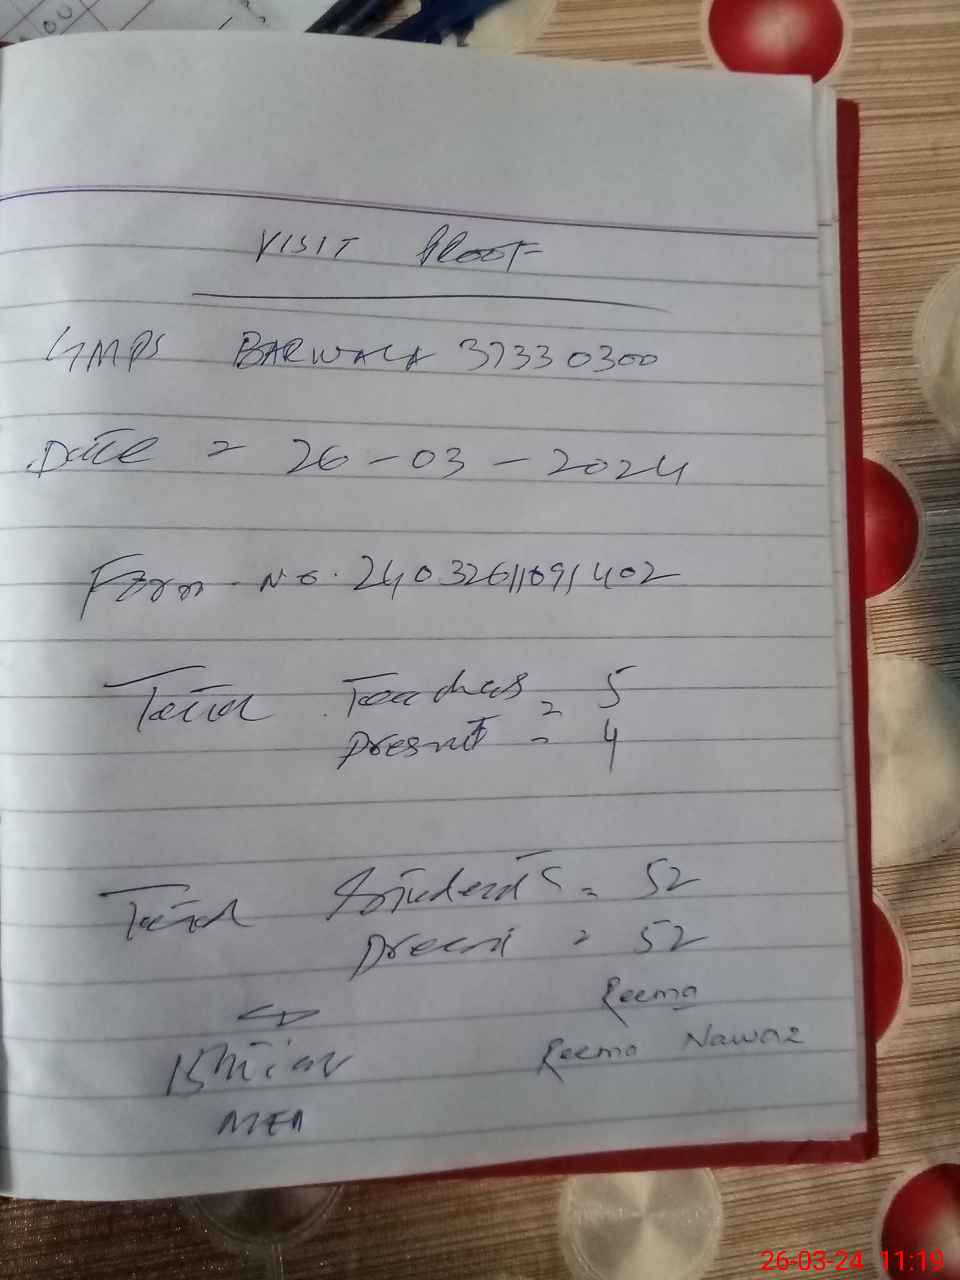 VISIT Proof
GMPS BARWALA 37330300
Date = 26-03-2024
Form No. 24032611091402
Total Teachers = 5
Present = 4
Total Students = 52
Present = 52
Reema
Reema Nawaz
AEA
26-03-24 11:19